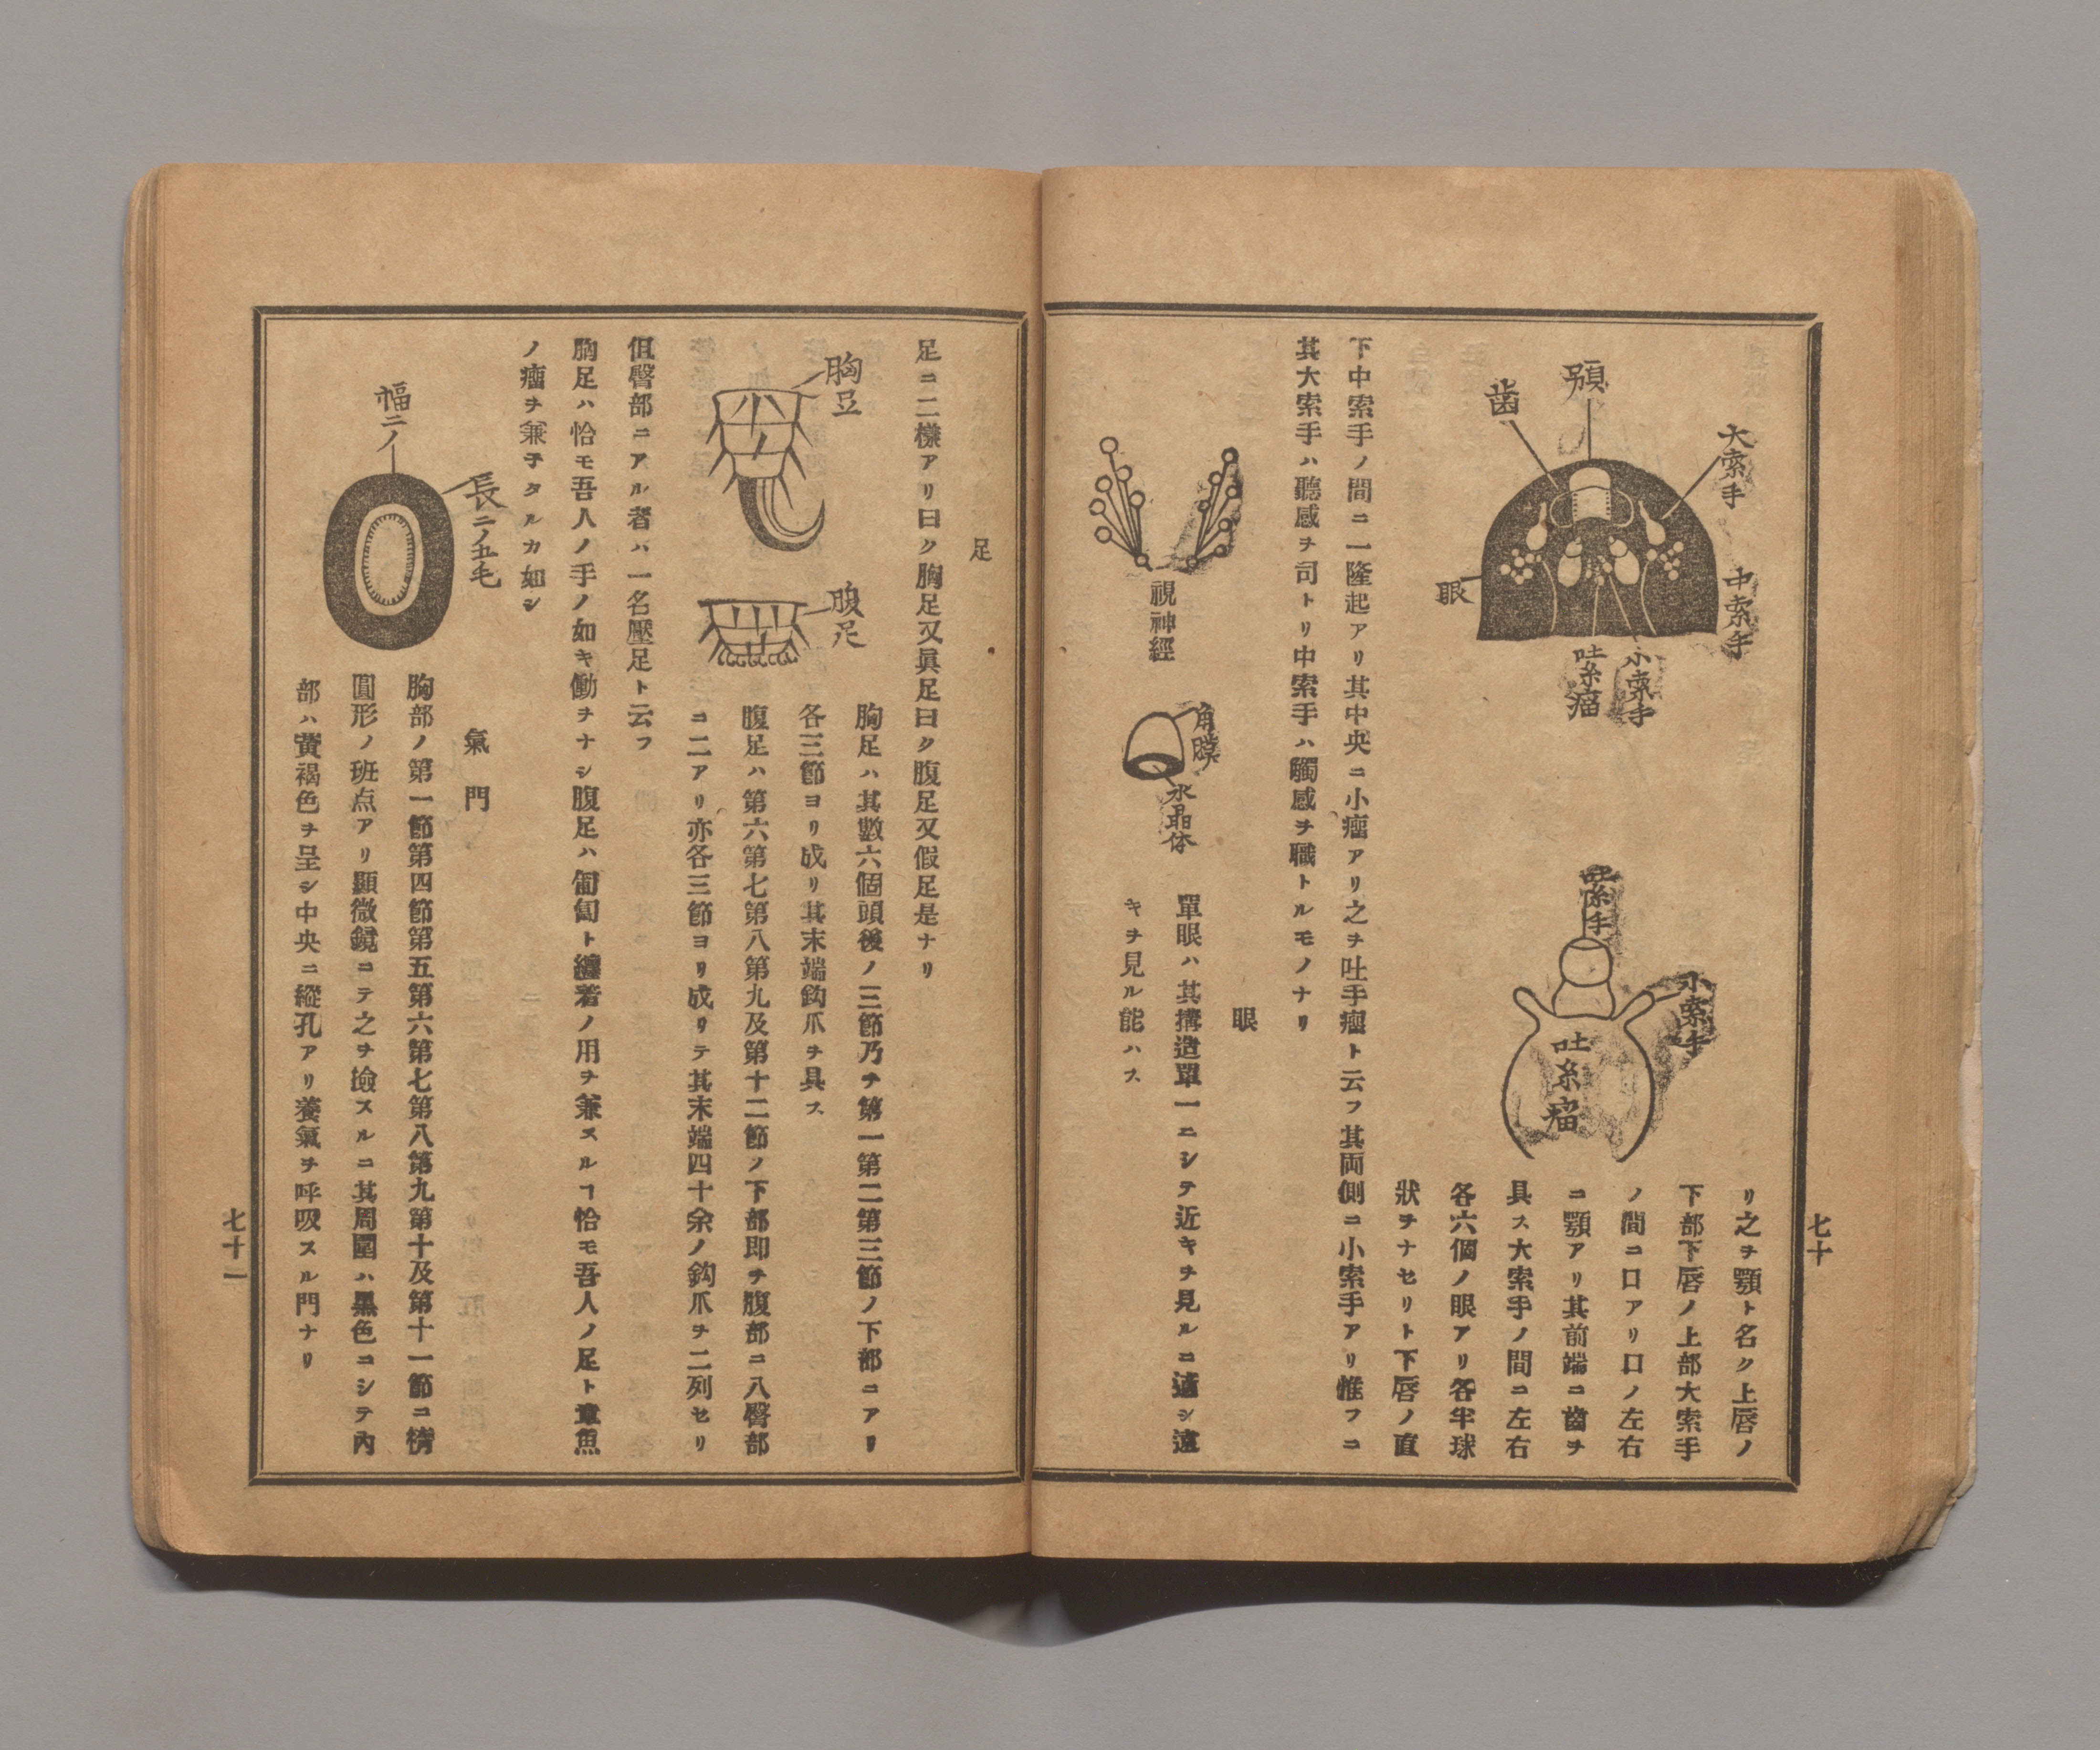 七十
顎
齒
大索手
中索手
小索手
吐糸瘤
眼
吐糸手
小索手
吐糸瘤
リ之ヲ顎ト名ク上唇ノ
下部下唇ノ上部大索手
ノ間ニ口アリ口ノ左右
ニ顎アリ其前端ニ齒ヲ
具ス大索手ノ間ニ左右
各六個ノ眼アリ各半球
狀ヲナセリト下唇ノ直
下中索手ノ間ニ一隆起アリ其中央ニ小瘤アリ之ヲ吐手瘤ト云フ其両側ニ小索手アリ惟フニ
其大索手ハ聽感ヲ司トリ中索手ハ觸感ヲ職トルモノナリ
眼
視神經
角膜
水晶体
單眼ハ其搆造單一ニシテ近キヲ見ルニ適シ遠
キヲ見ル能ハス
足
足ニ二樣アリ曰ク胸足又眞足曰ク腹足又假足是ナリ
胸足
腹足
胸足ハ其數六個頭後ノ三節乃チ第一第二第三節ノ下部ニアリ
各三節ヨリ成リ其末端鈎爪ヲ具ス
腹足ハ第六第七第八第九及第十二節ノ下部即チ腹部ニ八臀部
ニ二アリ亦各三節ヨリ成リテ其末端四十余ノ鈎爪ヲ二列セリ
但臀部ニアル者ハ一名壓足ト云フ
胸足ハ恰モ吾人ノ手ノ如キ働ヲナシ腹足ハ匍匐ト纏着ノ用ヲ兼スルヿ恰モ吾人ノ足ト章魚
ノ瘤ヲ兼子タルカ如シ
氣門
幅二ノ
長ニノ五毛
胸部ノ第一節第四節第五第六第七第八第九第十及第十一節ニ橢
圓形ノ班点アリ顯微鏡ニテ之ヲ撿スルニ其周圍ハ黒色ニシテ內
部ハ黄褐色ヲ呈シ中央ニ縱孔アリ養氣ヲ呼吸スル門ナリ
七十一